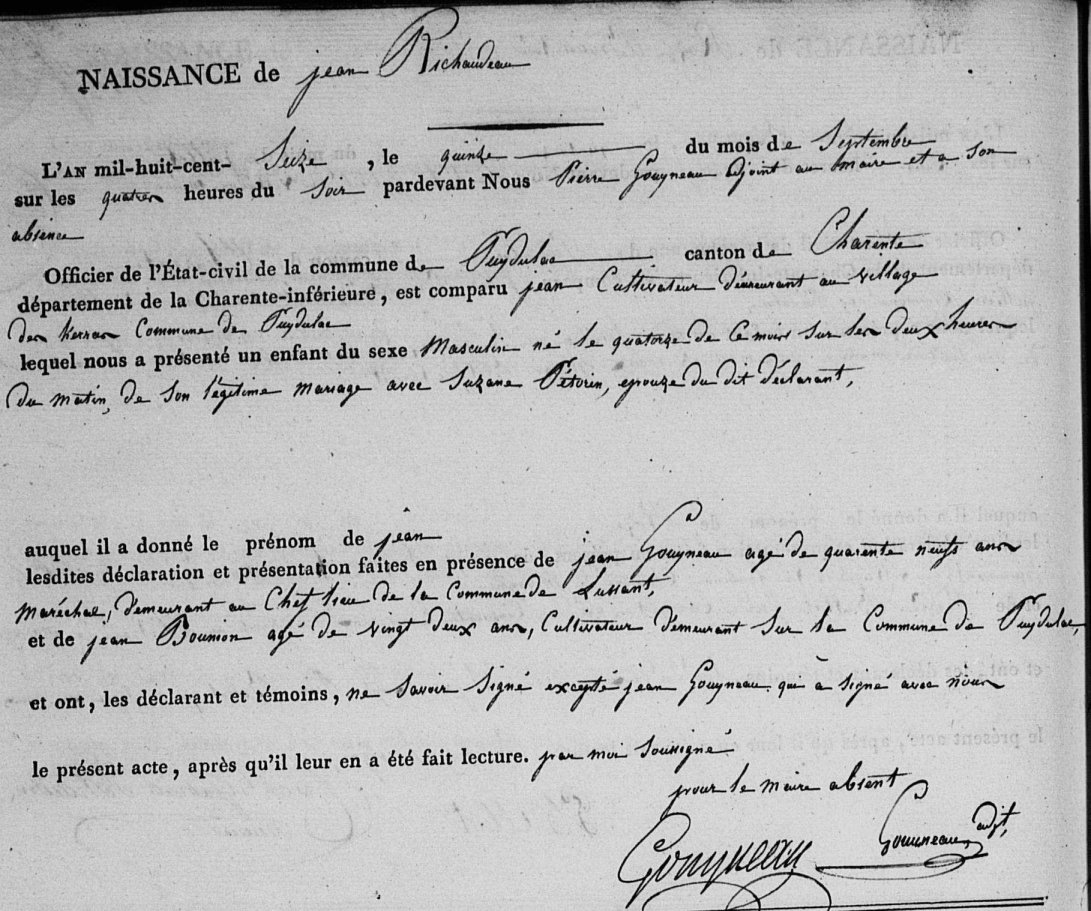 NAISSANCE de jean Richaudeau
L'AN mil-huit-cent- Seize, le quinze du mois de Septembre
sur les quatres heures du Soir pardevant Nous Pierre Gouyneau adjoint au maire et a son
absence
Officier de l'État-civil de la commune de Puydulac canton de Charente
département de la Charente-inférieure, est comparu jean Cultivateur demeurant au village
des Commune de Puydulac
lequel nous a présenté un enfant du sexe Masculin né le quatorze de Ce mois sur les deux heures
Du matin, de Son légitime mariage avec Suzane Pétorin, epouze du dit déclarant,
auquel il a donné le prénom de jean
lesdites déclaration et présentation faites en présence de jean Gouyneau agé de quarente neufs ans
Maréchal, demeurant au Chef lieu de la Commune de Lussant,
et de jean Bounion agé de vingt deux ans, Cultivateur demeurant Sur la Commune de Puydulac,
et ont, les déclarant et témoins, ne Savoir Signé excepté jean Gouyneau qui à Signé avec nous
le présent acte, après qu'il leur en a été fait lecture. par moi Soussigné
pour le maire absent
Gouyneau Gouyneau, adjt,